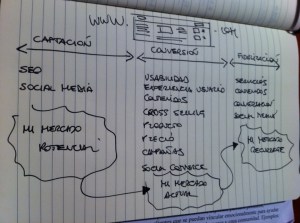 WWW.
.COM
CAPTACIÓN
CONVERSIÓN
FIDELIZACIÓN
SEO
SOCIAL MEDIA
MI MERCADO
POTENCIAL
USABILIDAD
EXPERIENCIA USUARIO
CONTENIDOS
CROSS SELLING
PRODUCTO
PRECIO
CAMPAÑAS
SOCIAL COMMERCE
MI MERCADO
ACTUAL
SERVICIOS
CONTENIDOS
CONVERSACIÓN
SOCIAL MEDIA
MI MERCADO
RECURRENTE